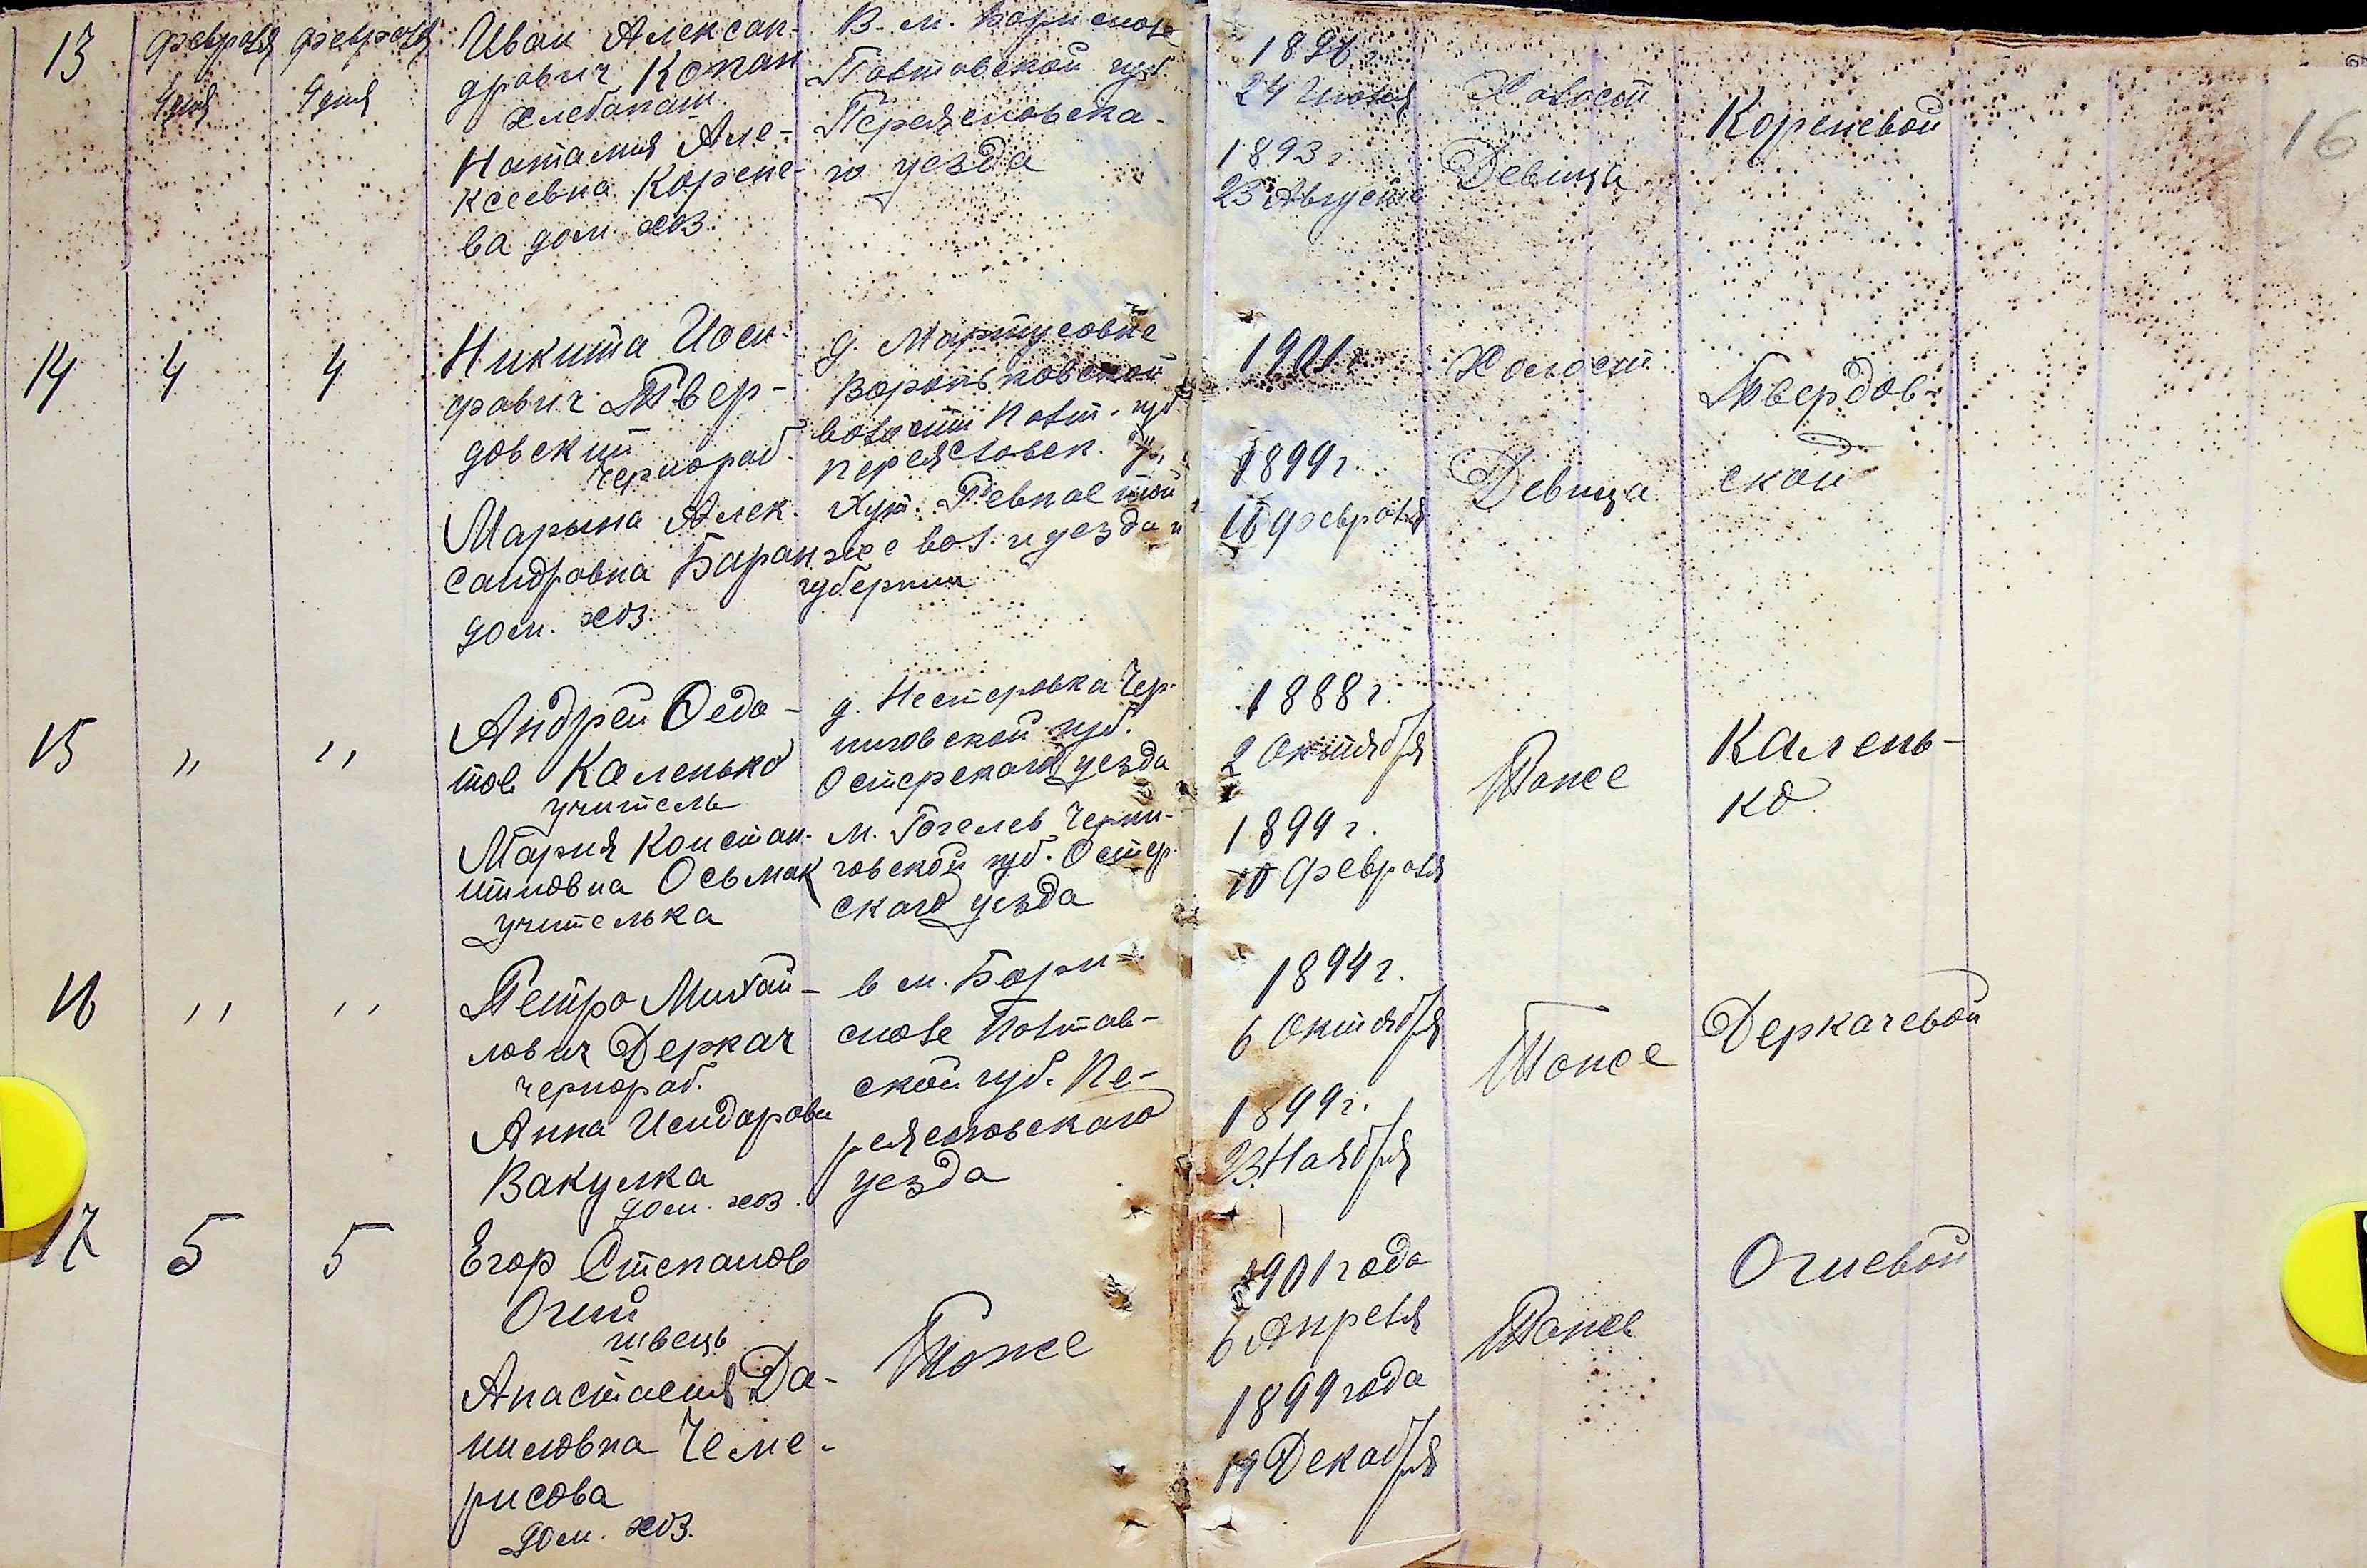 13
февраля
4 дня
февраля
4 дня
Иван Алексан-
дрович Копан
хлебопаш.
Наталия Але-
ксеевна Корене-
ва дом. хоз.
В. м. Борисполе
Полтавской губ.
Переясловска-
го уезда
24 Июня
1893 г.
23 Августа
Холост
Девица
Кореневой
16
14
4
4
Никита Иоси-
фович Твер-
довский
чернораб.
Марына Алек-
сандровна Баран
дом. хоз.
д. Мартусовке
Вороньковской
волости Полт. губ.
Переясловск. у.,
Хут.
же вол. и уезда и
губернии
1901 г.
1899 г.
февраля
Холост
Девица
Твердов-
ской
15
"
"
Андрей Федо-
тов Каленько
учитель
Мария Констан-
тиновна Осьмак
учителька
д. Нестеровка Чер-
ниговской губ.
Остерского уезда
м. Гоголев Черни-
говской губ. Остер-
ского уезда
1888 г.
2 Октября
1899 г.
10 февраля
Тоже
Калень-
ко
16
"
"
Петро Михай-
лович Деркач
чернораб.
Анна Исидоровн
Вакулка
дом. хоз.
в м. Бори-
споле Полтав-
ской губ. Пе-
реясловского
уезда
1894 г.
6 Октября
1899 г.
23 Ноября
Тоже
Деркачевой
17
5
5
Егор Степанов
Огий
швець
Анастасия Да-
ниловна Чеме-
рисова
дом. хоз.
Тоже
1901 года
6 Апреля
1899 года
19 Декабря
Тоже
Огиевой